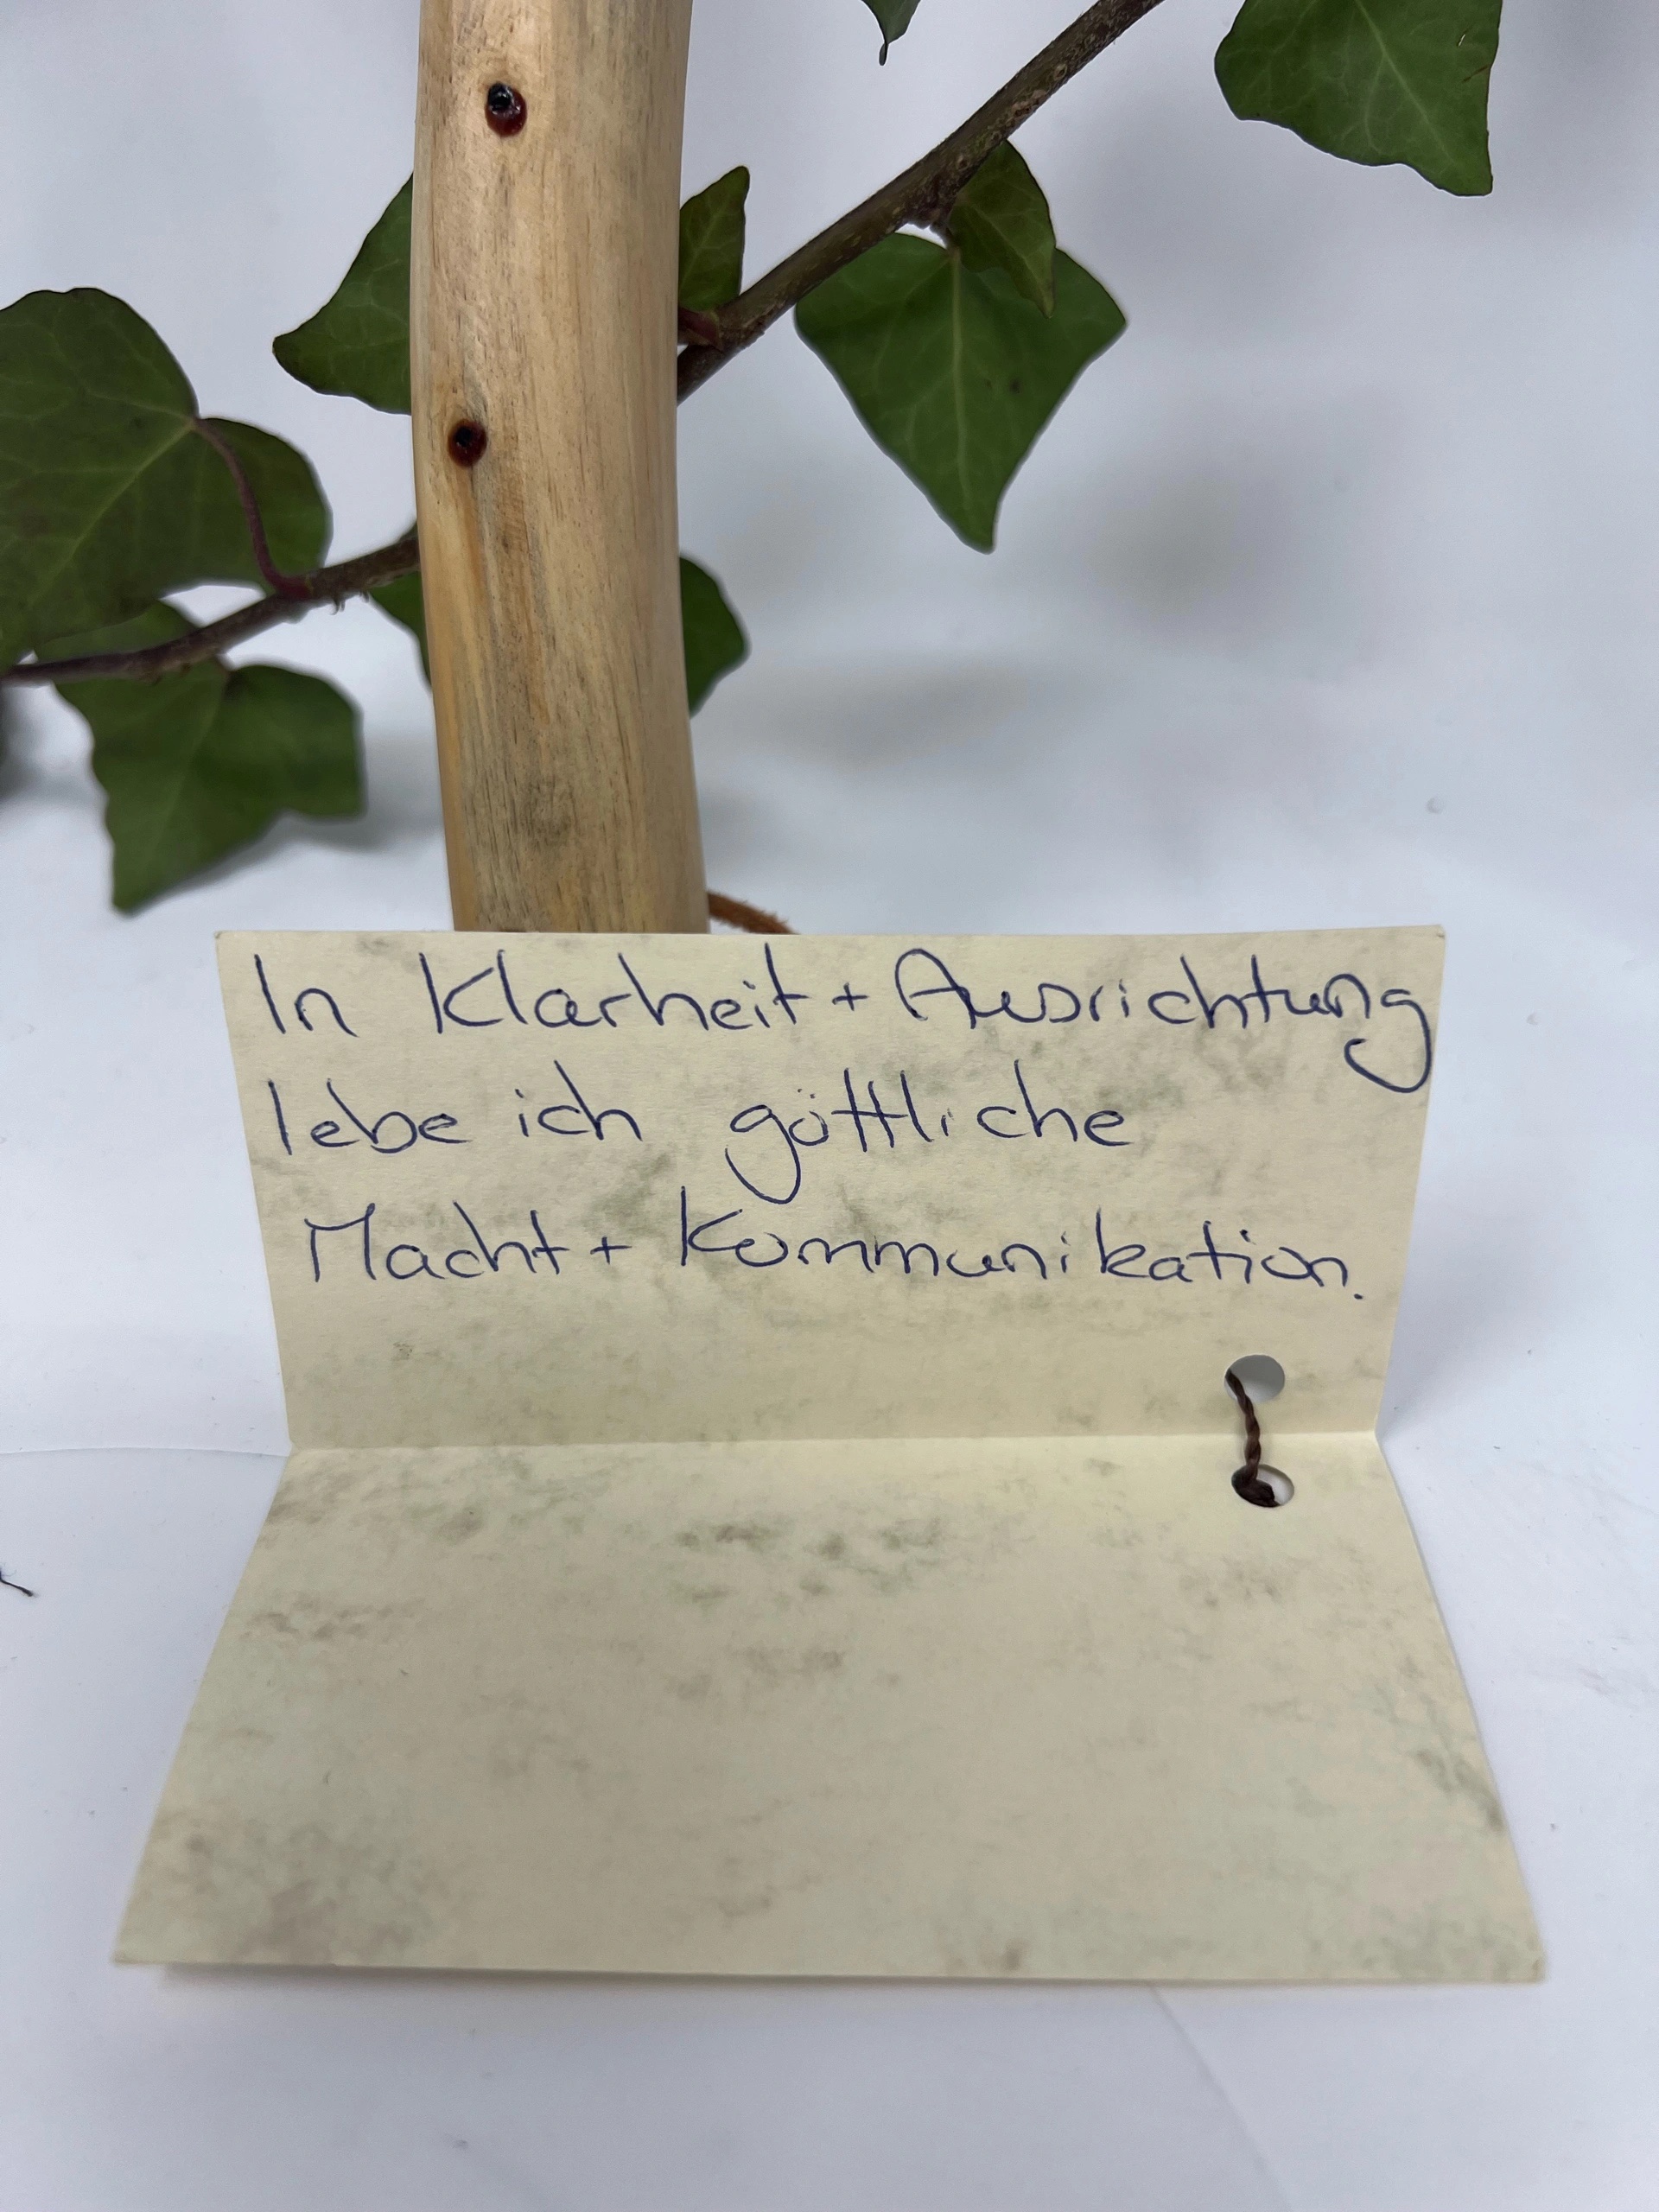 In Klarheit + Ausrichtung
lebe ich göttliche
Macht + Kommunikation.